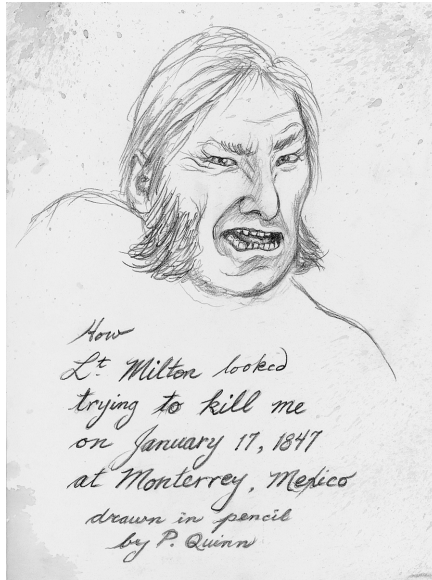 How
Lt. Milton looked
trying to kill me
on January 17, 1847
at Monterrey, Mexico
drawn in pencil
by P. Quinn